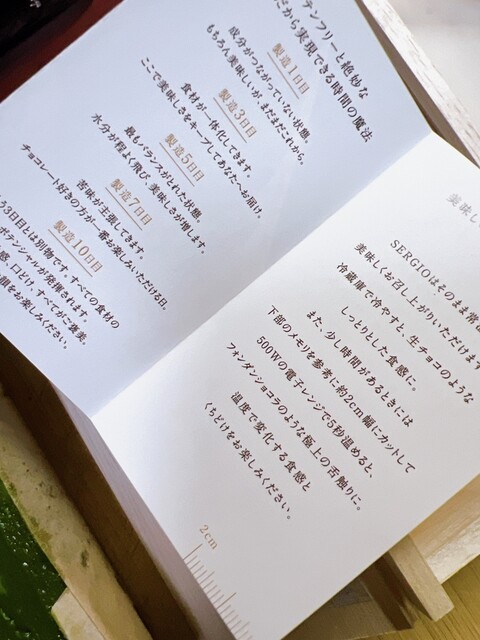 テンフリーと絶妙な
だから実現できる時間の魔法
製造1日目
成分がつながっていない状態。
もちろん美味しいが、まだまだこれから。
製造3日目
食材が一体化してきます。
ここで美味しさをキープしてあなたへお届け。
製造5日目
最もバランスがとれた状態。
水分が程よく飛び、美味しさが増します。
製造7日目
苦味が主張してきます。
チョコレート好きの方が一番お楽しみいただける日。
製造10日目
3日目とは別物です。すべての食材の
ポテンシャルが発揮されます。
感、口どけ、すべてがご褒美。
お楽しみください。
美味し
SERGIOはそのまま常温
美味しくお召し上がりいただけます
冷蔵庫で冷やすと、生チョコのような
しっとりとした食感に。
また、少し時間があるときには
下部のメモリを参考に約2cm幅にカットして
500Wの電子レンジで5秒温めると、
フォンダンショコラのような極上の舌触りに。
温度で変化する食感と
くちどけをお楽しみください。
2cm